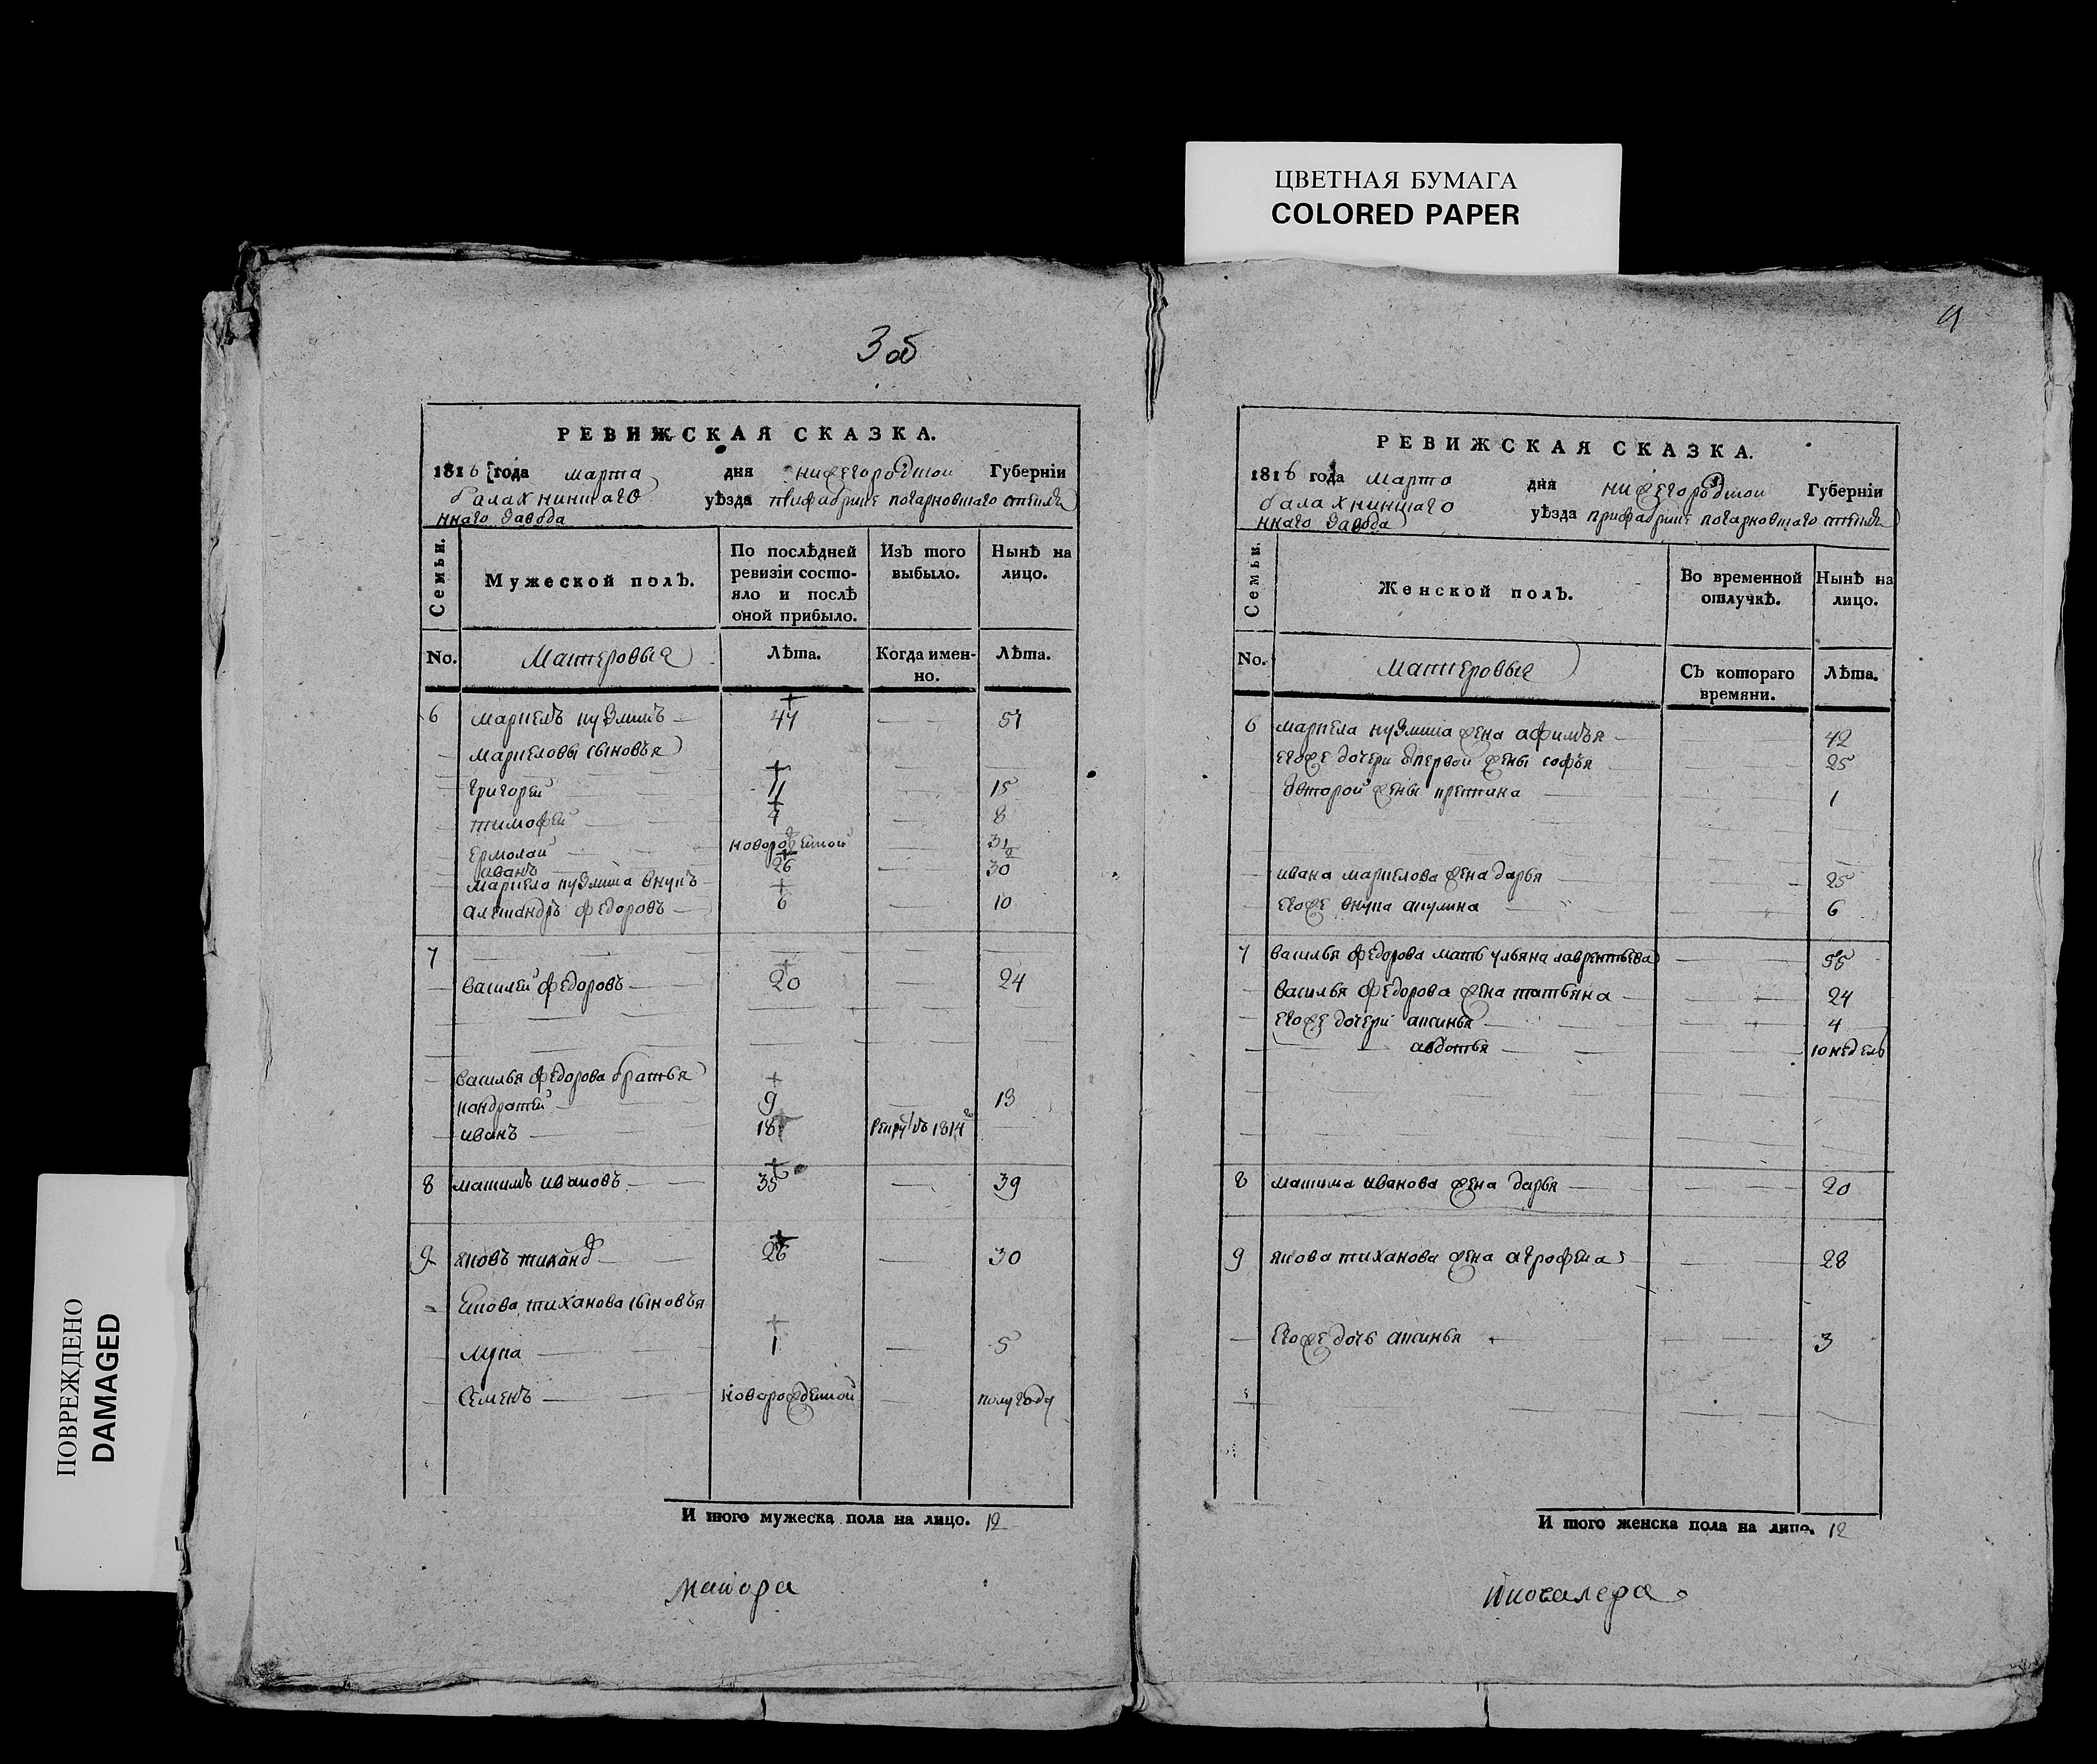 ЦВЕТНАЯ БУМАГА
COLORED PAPER
ПОВРЕЖДЕНО
DAMAGED
3 об
РЕВИЖСКАЯ СКАЗКА.
1816 года марта дня нижегородской Губерніи
балахнинскаго уѣзда при фабрике почарковскаго стекля
ннаго завода
Семьи. Мужеской полъ. По послѣдней ревизіи состояло и послѣ оной прибыло. Изъ того выбыло. Нынѣ на лицо.
No. Мастеровыя Лѣта. Когда именно. Лѣта.
6 маркелъ кузминъ 47 51
маркеловы сыновья
григорей 11 15
тимофей 4 8
ермолай новорожденой 3 1/2
иванъ 26 30
маркела кузмина внукъ
александръ федоровъ 6 10
7
василей федоровъ 20 24
василья федорова братья
кондратей 9 13
иванъ 18 рекру въ 1814
8 максимъ ивановъ 35 39
9 яковъ тихано 26 30
якова тиханова сыновья
лука 1 5
семенъ новорожденой полугоду
И того мужеска пола на лицо. 12
маиора
4
РЕВИЖСКАЯ СКАЗКА.
1816 года марта дня нижегородской Губерніи
балахнинскаго уѣзда при фабрике почарковскаго стекля
ннаго завода
Семьи. Женской полъ. Во временной отлучкѣ. Нынѣ на лицо.
No. мастеровыя Съ котораго времяни. Лѣта.
6 маркела кузмина жена афимья 42
егоже дочери от первой жены софья 25
от второй жены кретина 1
ивана маркелова жена дарья 25
егоже внука акулина 6
7 василья федорова мать ульяна лаврентьева 56
василья федорова жена татьяна 24
егоже дочери аксинья 4
авдотья 10 недель
8 максима иванова жена дарья 20
9 якова тиханова жена аграфена 28
егоже дочь аксинья 3
И того женска пола на лицо. 12
икавалера